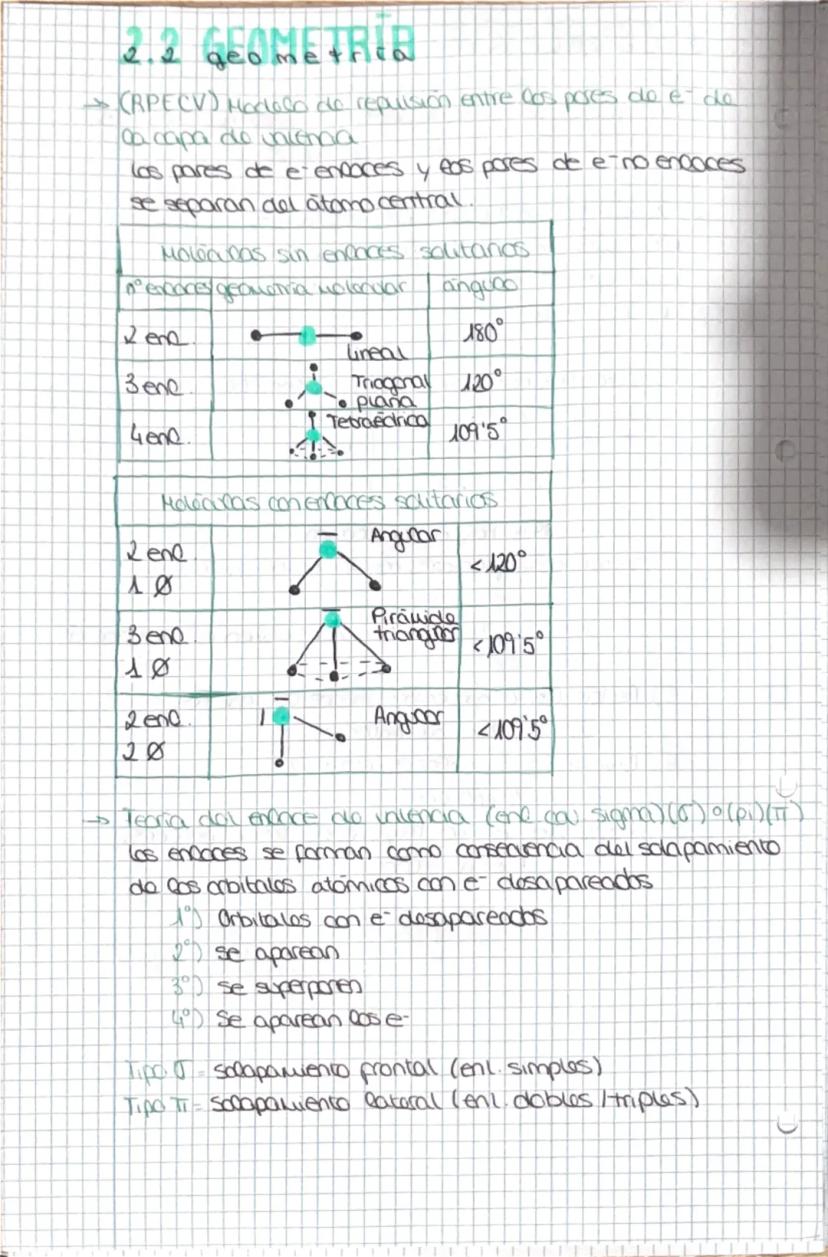 2.2 GEOMETRÍA
geometría
→ (RPECV) Modelo de repulsión entre los pares de e⁻ de
la capa de valencia
los pares de e⁻ enlaces y los pares de e⁻ no enlaces
se separan del átomo central.
Moléculas sin enlaces solitarios
nº enlaces geometría molecular ángulo
2 enl. lineal 180°
3 enl. Triagonal plana 120°
4 enl. Tetraédrica 109'5°
Moléculas con enlaces solitarios
2 enl. 1 Ø Angular <120°
3 enl. 1 Ø Pirámide triangular <109'5°
2 enl. 2 Ø Angular <109'5°
→ Teoría del enlace de valencia (enl. cov sigma)(σ) o (pi)(π)
los enlaces se forman como consecuencia del solapamiento
de los orbitales atómicos con e⁻ desapareados
1º) Orbitales con e⁻ desapareados
2º) se aparean
3º) se superponen
4º) Se aparean los e⁻
Tipo σ = solapamiento frontal (enl. simples)
Tipo π = solapamiento lateral (enl. dobles / triples)